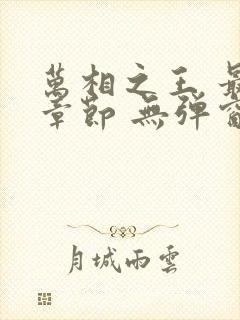 萬相之王 最
章節 無彈窗
月城雨雲